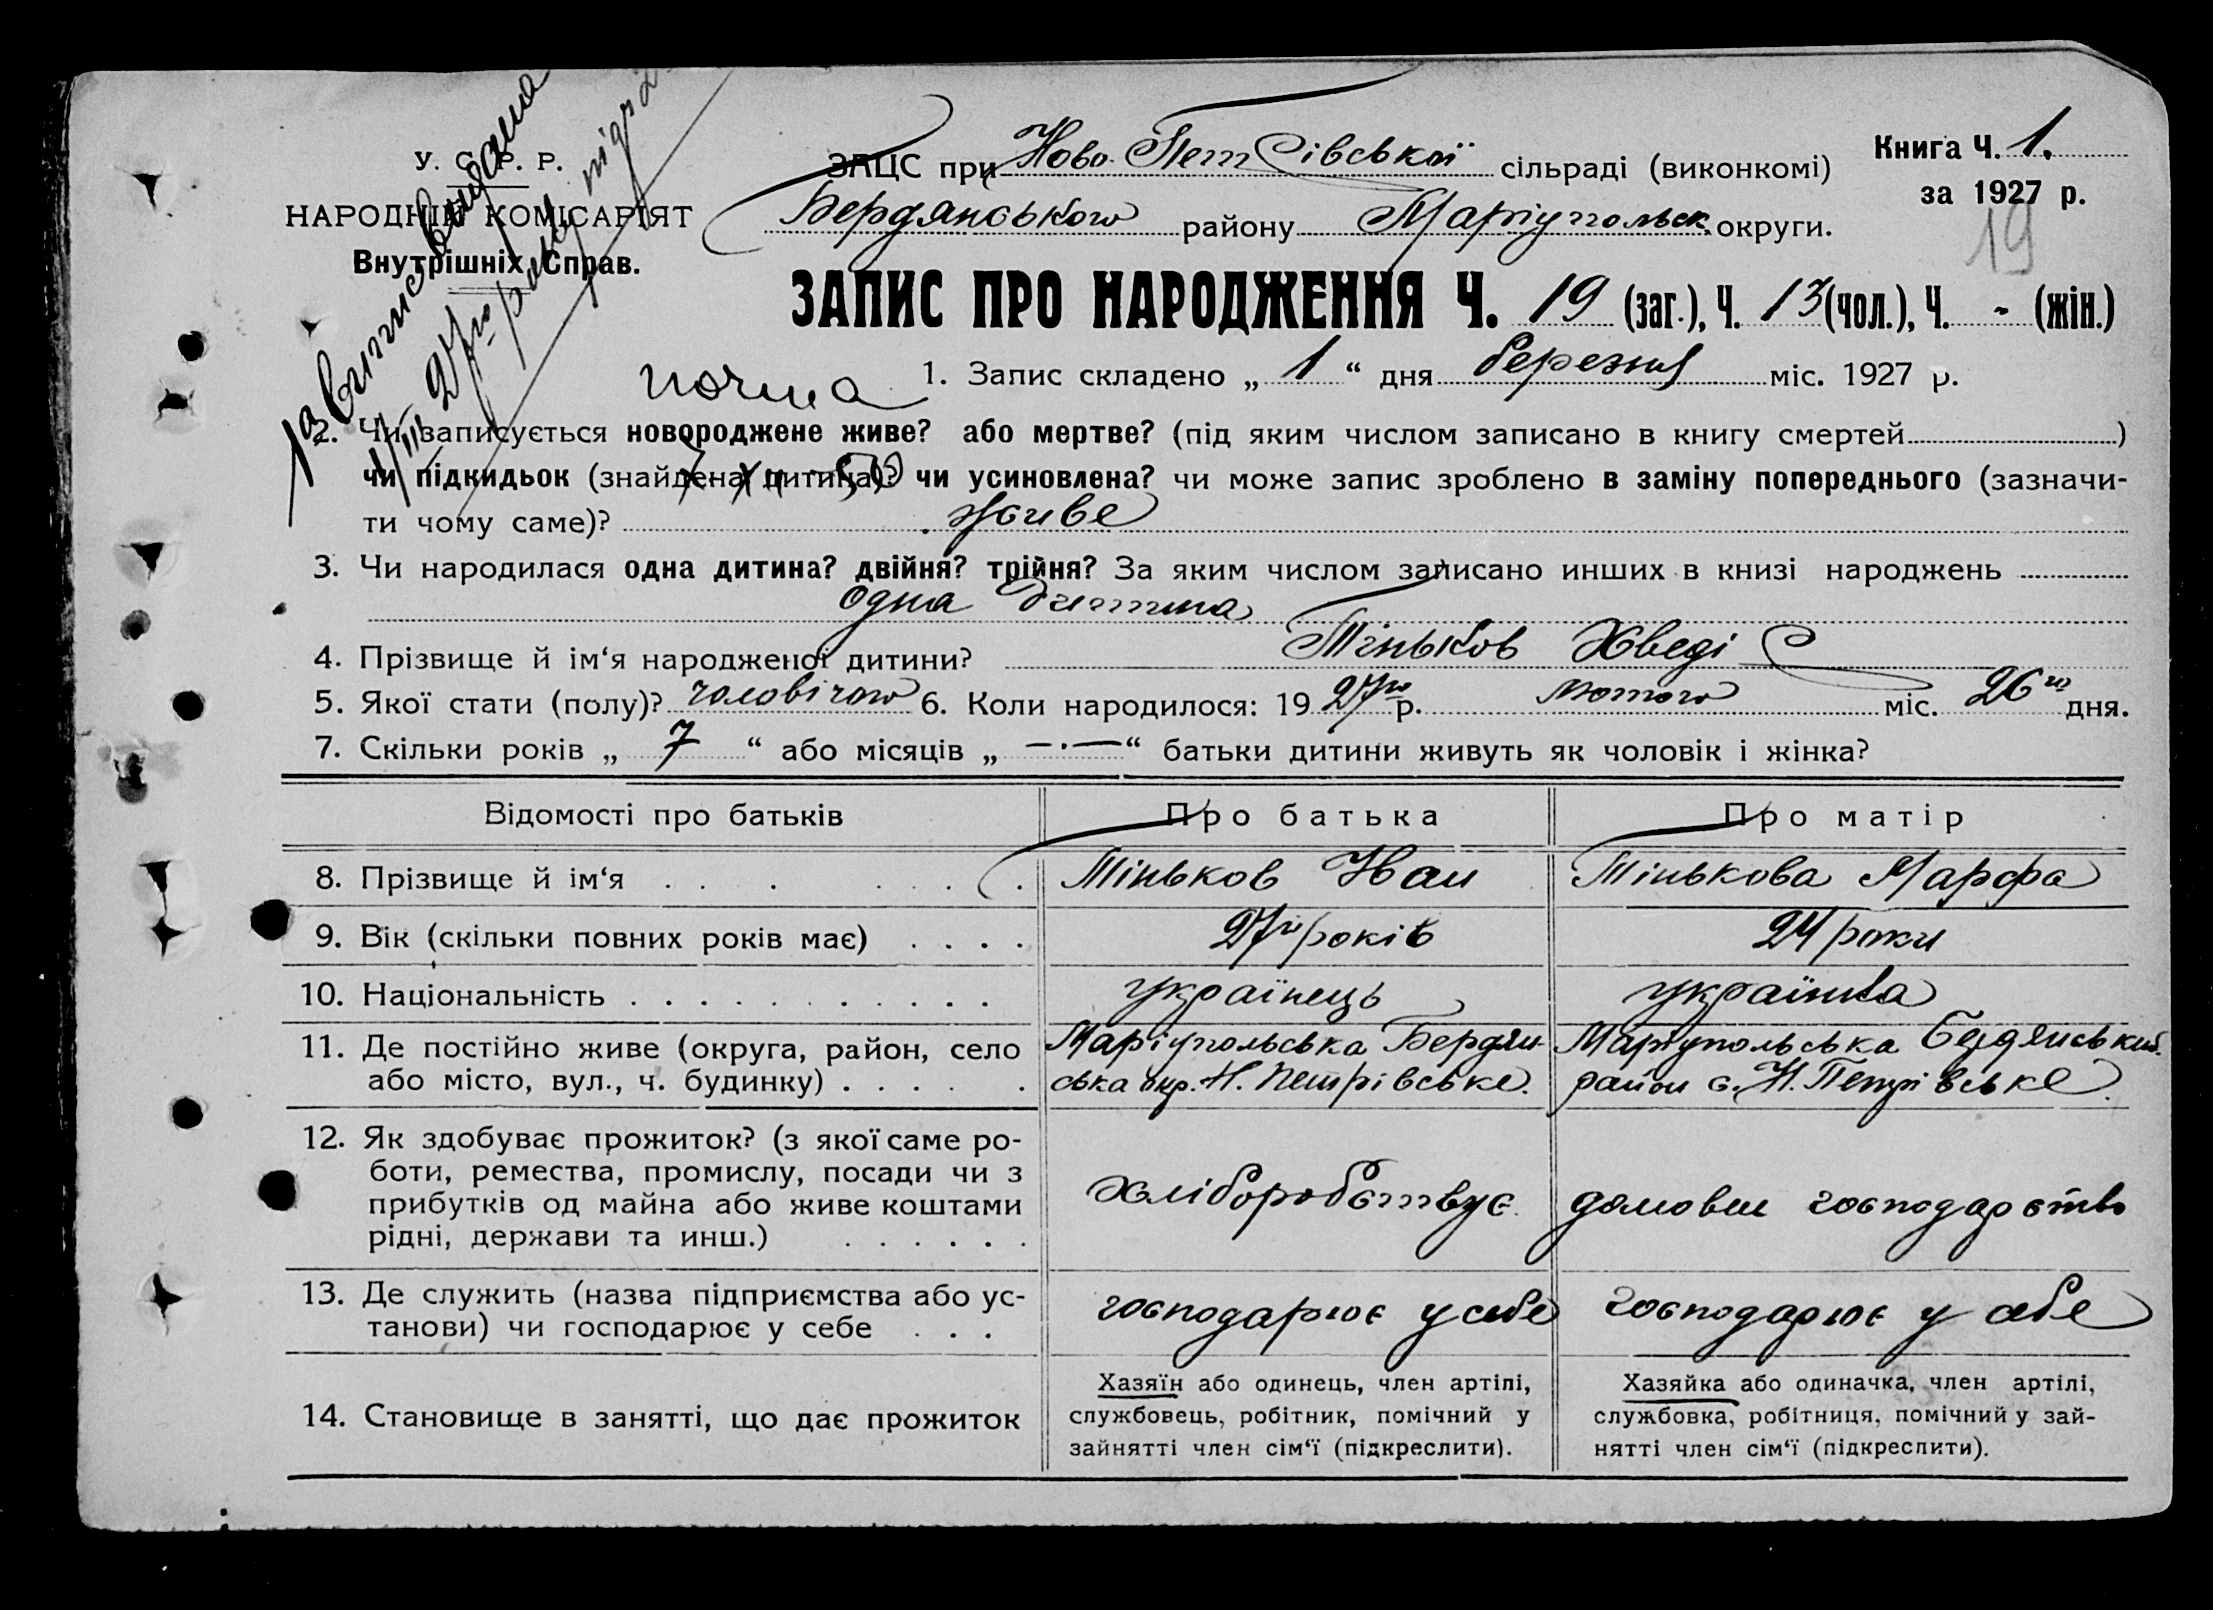 1а Виписка видана
1/III 27го року підпис
У. С. Р. Р.
НАРОДНІЙ КОМІСАРІЯТ
Внутрішніх Справ.
ЗАЦС при Ново-Петрівській сільраді (виконкомі)
Бердянського району Маріупольськ. округи.
Книга Ч. 1.
за 1927 р.
19
ЗАПИС ПРО НАРОДЖЕННЯ Ч. 19 (заг.), Ч. 13 (чол.), Ч. - (жін.)
1. Запис складено „ 1 “ дня березня міс. 1927 р.
2. Чи записується новороджене живе? або мертве? (під яким числом записано в книгу смертей )
чи підкидьок (знайдена дитина)? чи усиновлена? чи може запис зроблено в заміну попереднього (зазначи-
ти чому саме)? живе
3. Чи народилася одна дитина? двійня? трійня? За яким числом записано инших в книзі народжень
одна дитина
4. Прізвище й ім‘я народженої дитини? Тіньков Хведір
5. Якої стати (полу)? чоловічого 6. Коли народилося: 19 27го р. лютого міс. 26го дня.
7. Скільки років „ 7 “ або місяців „ —·— “ батьки дитини живуть як чоловік і жінка?
Відомості про батьків Про батька Про матір
8. Прізвище й ім‘я . . . . . . . Тіньков Иван Тінькова Марфа
9. Вік (скільки повних років має) . . . . 27 років 24 роки
10. Національність . . . . . . . . . . . українець українка
11. Де постійно живе (округа, район, село Маріупольська Бердян- Маріупольська Бердянський
або місто, вул., ч. будинку) . . . . . ська окр. Н. Петрівське. район с. Н. Петрівське.
12. Як здобуває прожиток? (з якої саме ро-
боти, ремества, промислу, посади чи з
прибутків од майна або живе коштами хліборобствує домовим господарство
рідні, держави та инш.) . . . . . .
13. Де служить (назва підприємства або ус-
танови) чи господарює у себе . . . господарює у себе господарює у себе
14. Становище в занятті, що дає прожиток
Хазяїн або одинець, член артілі,
службовець, робітник, помічний у
зайнятті член сім‘ї (підкреслити).
Хазяйка або одиначка, член артілі,
службовка, робітниця, помічний у зай-
нятті член сім‘ї (підкреслити).